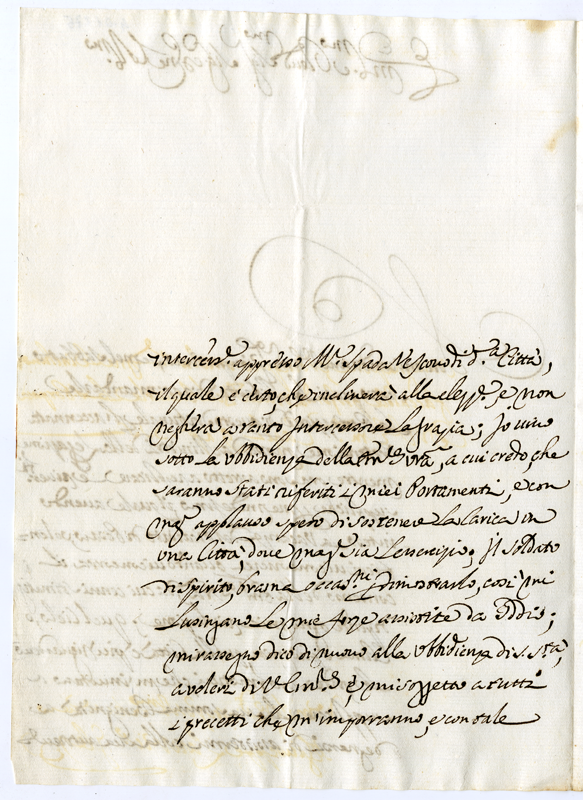 intercess.e appresso Mr. Spada Vescovo di d.a Città,
il quale è certo, che inclinerà alla cle e non
negherà a tanto Intercessore la grazia; Io vivo
sotto la ubbidienza della Em.za V.ra, a cui credo, che
saranno stati riferiti i miei Portamenti, e con
mag.r applauso spero di sostenere la Carica in
una Città, dove mag.r sia l'esercizio; Il soldato
di spirito, brama occas.ni di mostrarlo, così mi
lusingano le mie forze assistite da Iddio;
mi rassegno dico di nuovo alla ubbidienza di S. Stà,
a voleri di V. Em.za e mi soggetto a tutti
i precetti che m'imporranno, e con tale